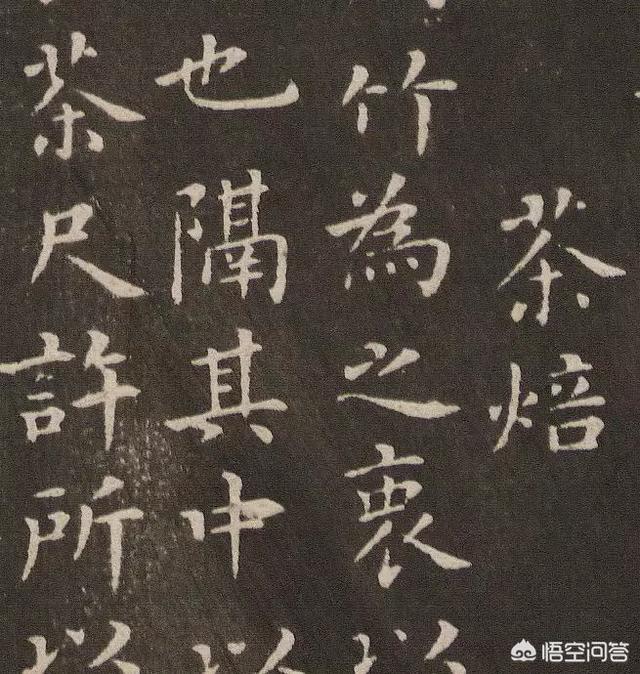 茶焙
竹為之裹以
也隔其中以
茶尺許所以
悟空问答